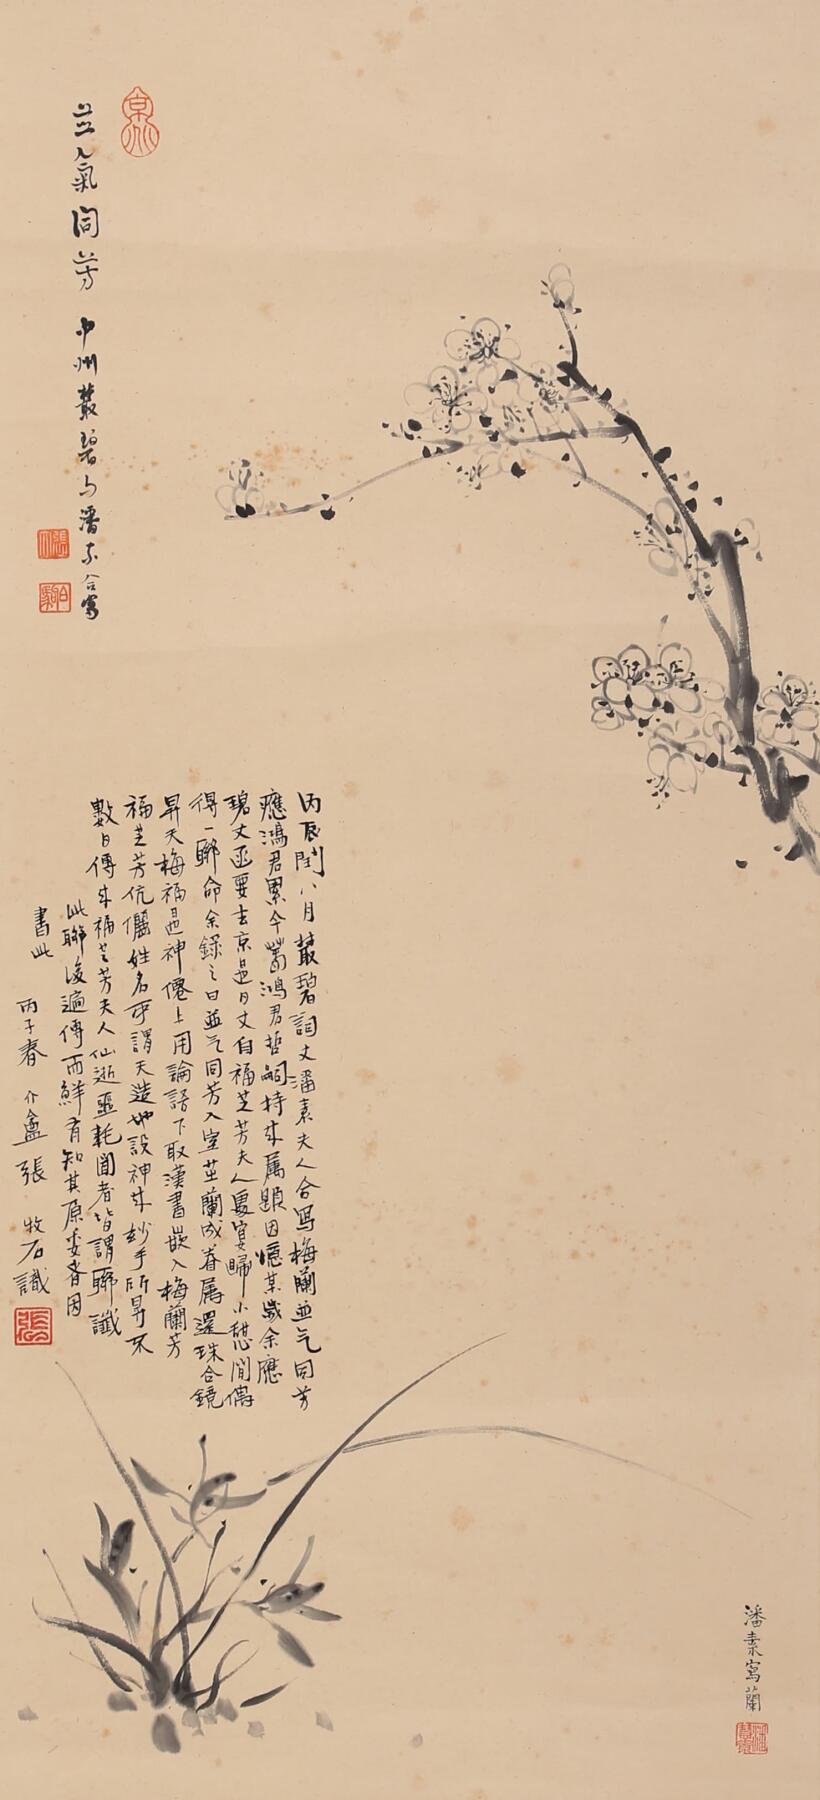 並氣同芳
中州叢碧與潘素合寫
張
伯駒
丙辰閏八月叢碧詞丈潘素夫人合寫梅蘭並气同芳
應鴻君累今鴻君哲嗣持來属題因憶某歲余應
碧丈函要去京是日丈自福芝芳夫人處宴歸小憩間偶
得一聯命余錄之曰並气同芳入室芷蘭成眷属還珠合鏡
昇天梅福是神僊上用論語下取漢書嵌入梅蘭芳
福芝芳伉儷姓名可謂天造地設神來妙手所昇不
數日傳來福芝芳夫人仙逝噩耗聞者皆謂聯讖
此聯後遍傳而鮮有知其原委者因
書此
丙子春介盦張牧石識
張
潘素寫蘭